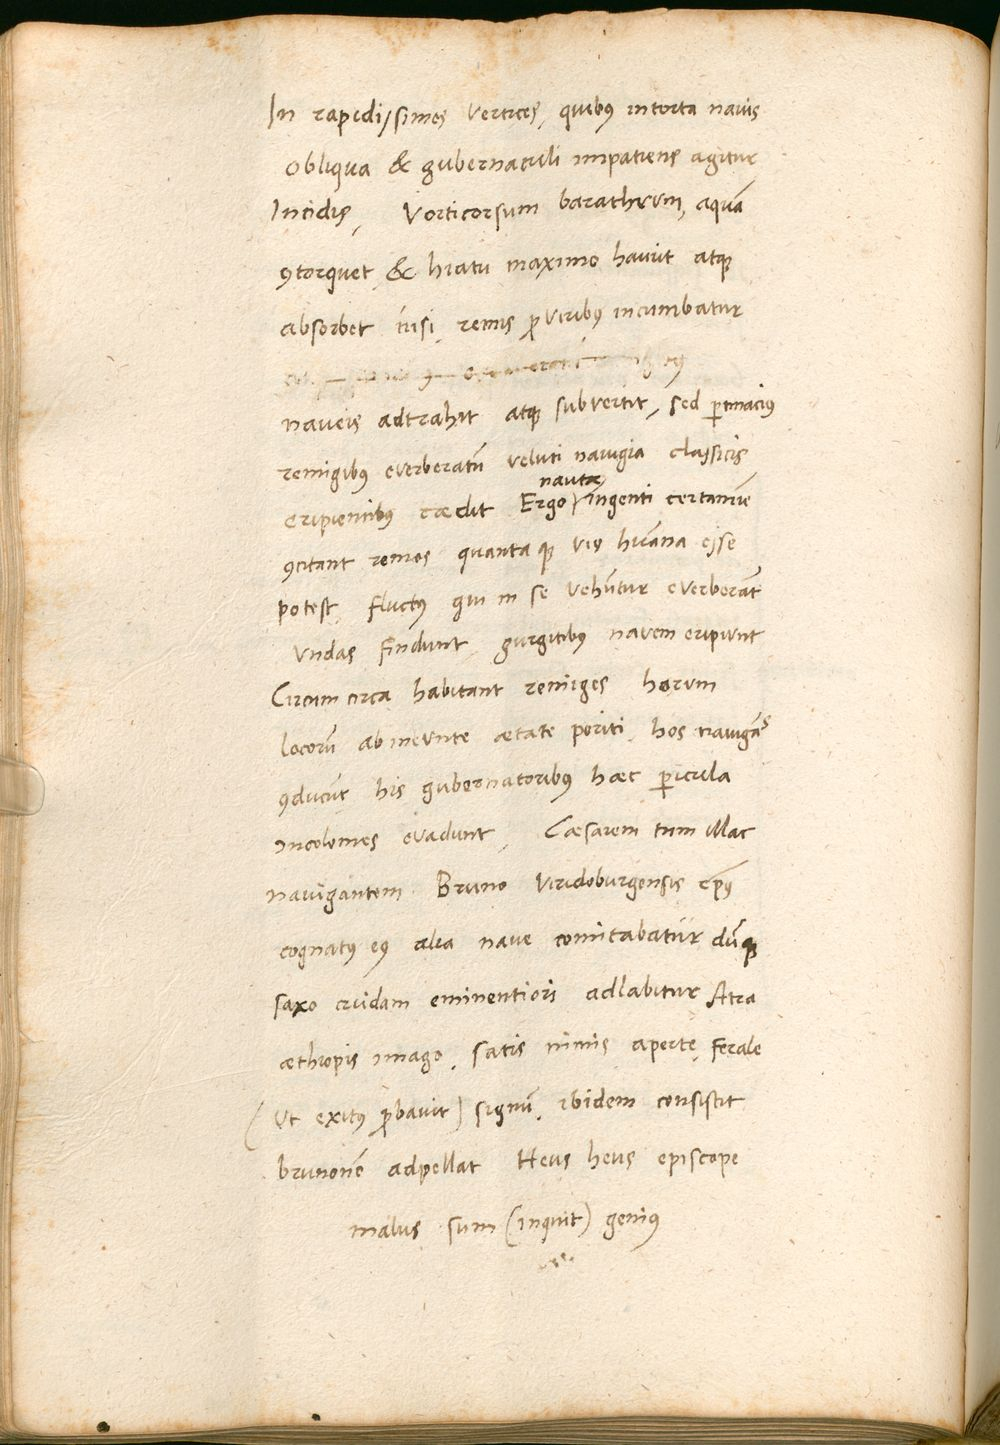 In rapidissimos vertices, quibꝰ intorta navis
obliqua & gubernaculi impatiens agitur
Incidis, Vorticorsum barathrum, aquā
ꝯtorquet & hiatu maximo haurit atqꝫ
absorbet nisi remis ꝓ viribꝰ incumbatur
naveis adtrahit atqꝫ subvertit, sed ꝑtinaciꝰ
remigibꝰ everberatū veluti navigia classicis
eripientibꝰ cædit Ergo nautæ ingenti certamīe
ꝯcitant remos quanta qꝫ vis hūana esse
potest, fluctꝰ qui in se vehūtur everberāt
undas findunt, gurgitibꝰ navem eripiunt
Circum circa habitant remiges horum
locorū ab ineunte ætate periti, hos navigās
ꝯducūt his gubernatoribꝰ hæc ꝑicula
incolomes evadunt, Cæsarem tum illac
navigantem Bruno Viridoburgensis epꝰ
cognatꝰ eꝰ alia nave comitabatur dūqꝫ
saxo cuidam eminentiori adlabitur Atra
æthiopis imago, satis nimis aperte, ferale
(ut exitꝰ ꝓbavit) signū, ibidem consistit
brunonē adpellat Heus heus episcope
malus sum (inquit) geniꝰ